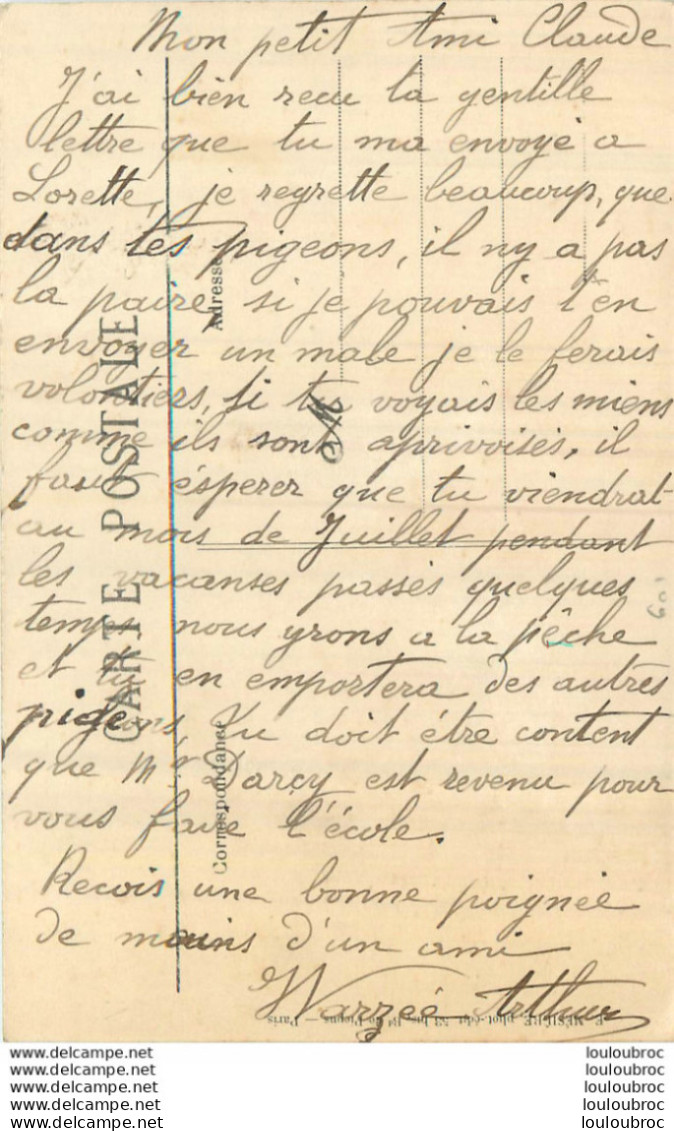 Mon petit Ami Claude
J'ai bien recu la gentille
lettre que tu ma envoyé a
Lorette, je regrette beaucoup, que
dans tes pigeons, il ny a pas
la paire si je pouvais t'en
envoyer un male je le ferais
volontiers, si tu voyais les miens
comme ils sont aprivoisés, il
faut ésperer que tu viendrat
au mois de Juillet pendant
les vacanses passés quelques
temps nous yrons a la pêche
et tu en emportera des autres
pigeons, tu doit étre content
que Mr Darçy est revenu pour
vous faire l'école.
Recois une bonne poignée
de mains d'un ami
Warzée Arthur
CARTE POSTALE
Correspondance
Adresse
www.delcampe.net
www.delcampe.net
www.delcampe.net
www.delcampe.net
www.delcampe.net
louloubroc
louloubroc
louloubroc
louloubroc
louloubroc